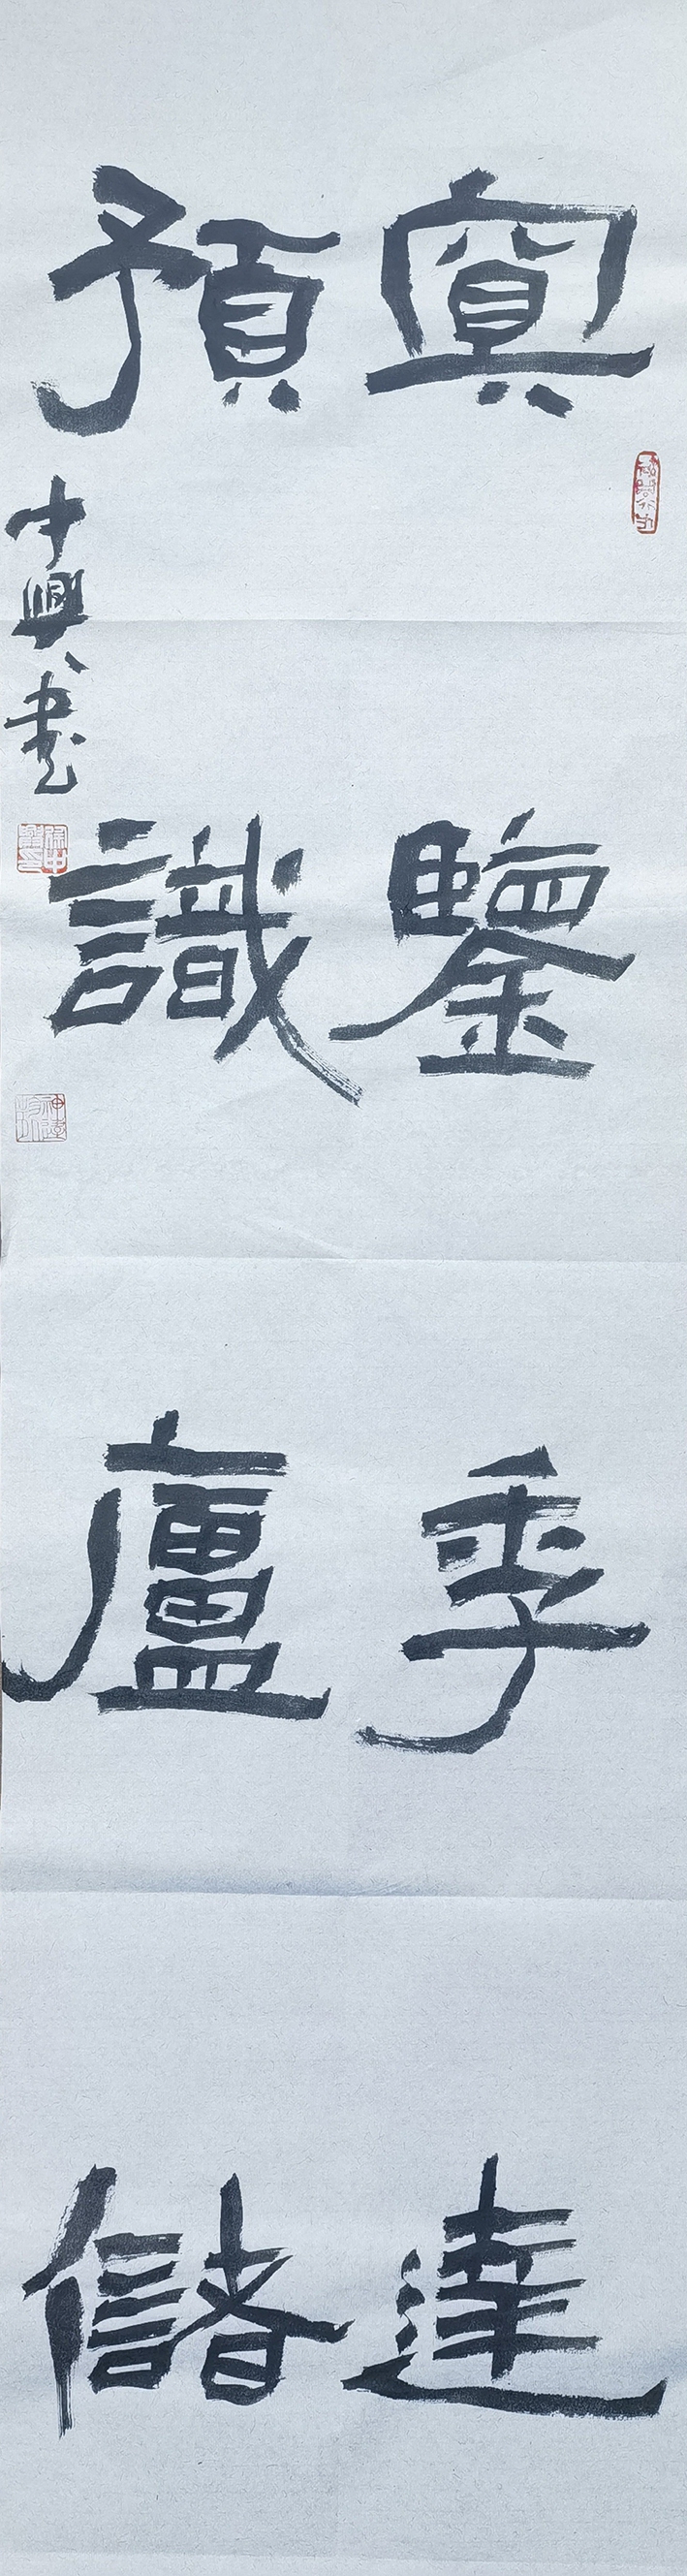 寘鑒季達
預識廬儲
中興書